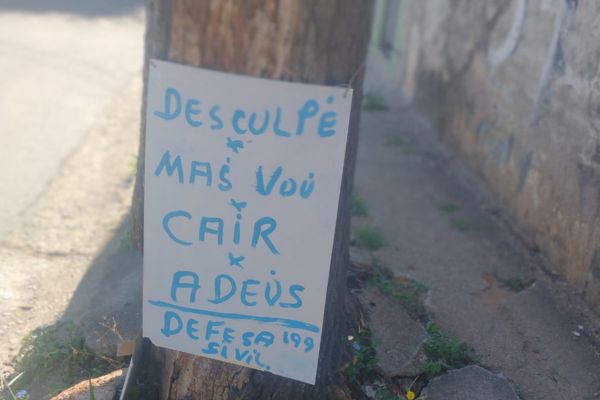 DESCULPÉ
x
MAS VOU
x
CAIR
x
ADEUS
DEFESA 199
SIVIL.